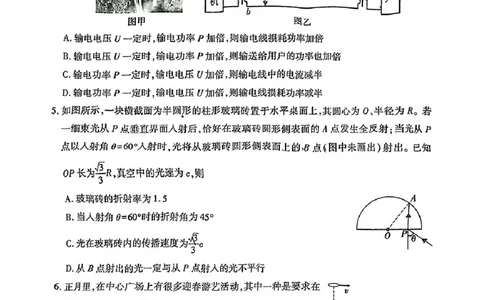 b
图甲
图乙
A. 输电电压 U 一定时,输电功率 P 加倍,则输电线损耗功率加倍
B. 输电电压 U 一定时,输电功率 P 加倍,则输送给用户的功率也加倍
C. 输电功率 P 一定时,输电电压 U 加倍,则输电线中的电流减半
D. 输电功率 P 一定时,输电电压 U 加倍,则输电线损耗功率减半
5. 如图所示,一块横截面为半圆形的柱形玻璃砖置于水平桌面上,其圆心为 O、半径为 R。若
一细束光从 P 点垂直界面入射后,恰好在玻璃砖圆形侧表面的 A 点发生全反射;当光从 P
点以入射角 θ=60°入射时,光将从玻璃砖圆形侧表面上的 B 点(图中未画出)射出。已知
OP 长为 √3/3 R,真空中的光速为 c,则
A. 玻璃砖的折射率为 1.5
B. 当入射角 θ=60°时的折射角为 45°
C. 光在玻璃砖内的传播速度为 √3/3 c
D. 从 B 点射出的光一定与从 P 点射入的光不平行
A
O
P
θ
6. 正月里,在中心广场上有很多迎春游艺活动,其中一种是要求在
v